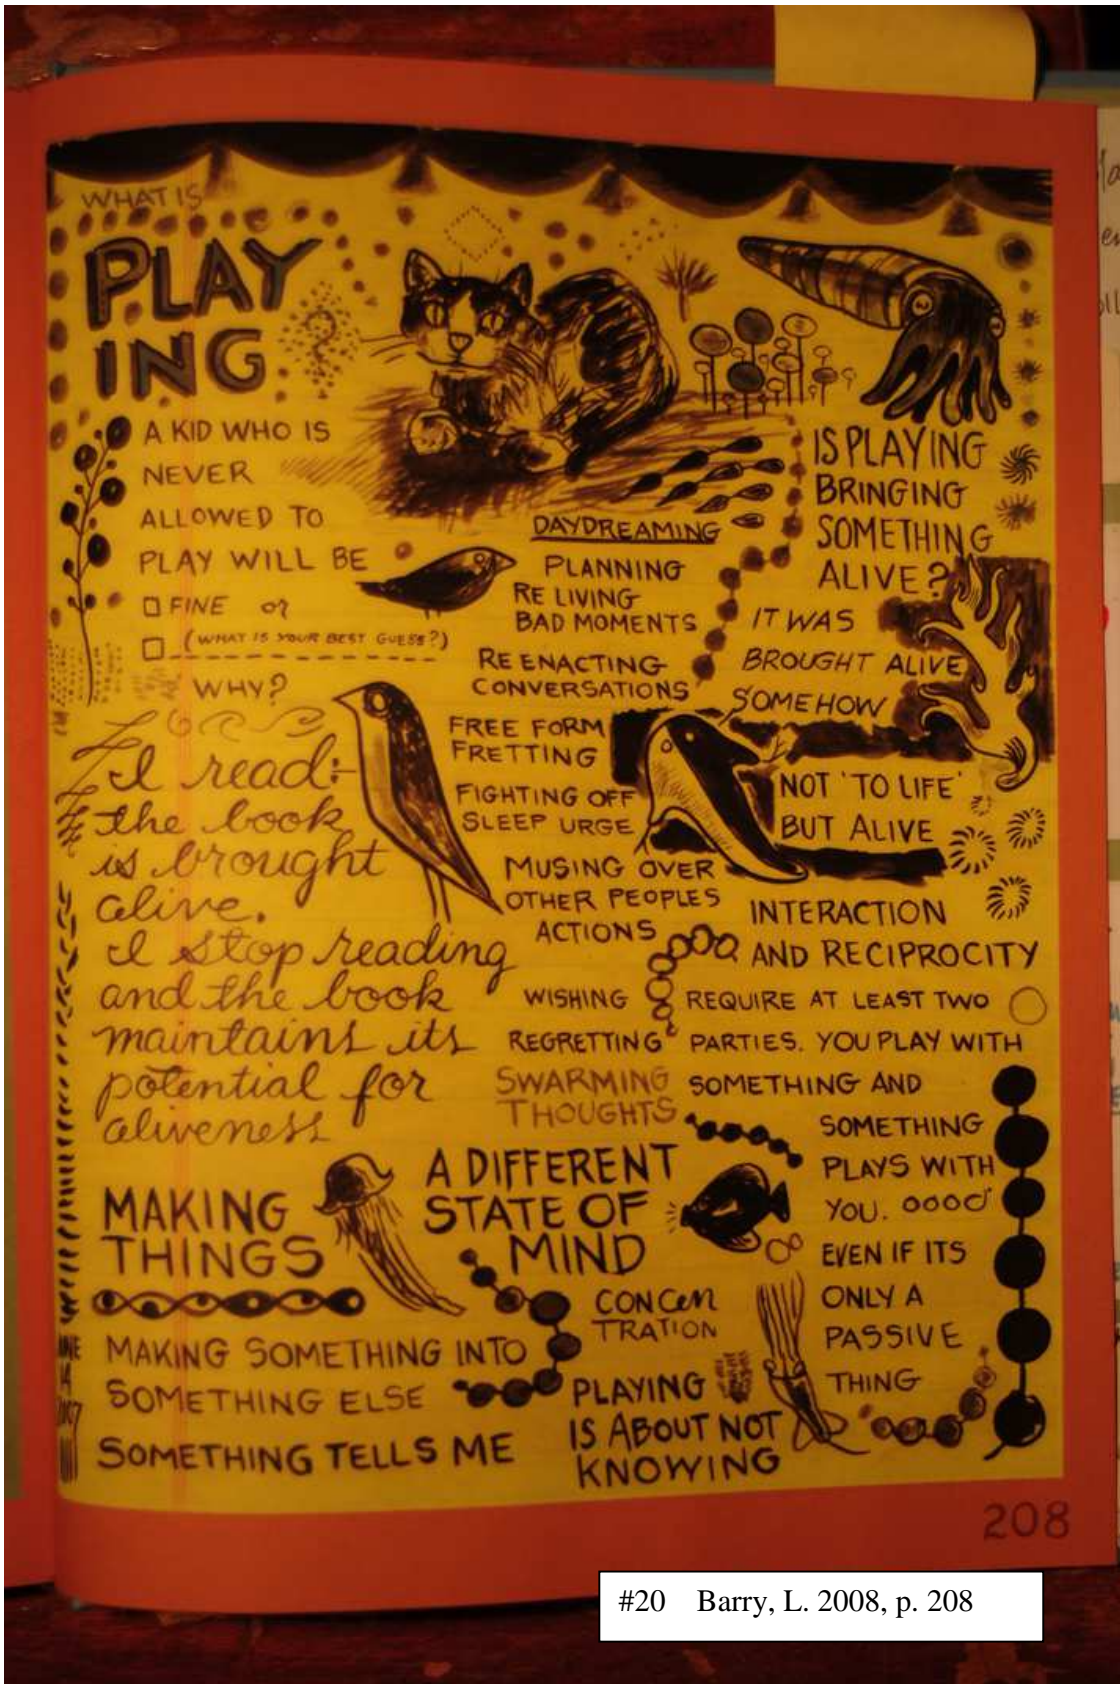 WHAT IS
PLAY
ING
?
A KID WHO IS
NEVER
ALLOWED TO
PLAY WILL BE
FINE or
(WHAT IS YOUR BEST GUESS?)
WHY?
I read:
the book
is brought
alive.
I stop reading
and the book
maintains its
potential for
aliveness
MAKING
THINGS
MAKING SOMETHING INTO
SOMETHING ELSE
SOMETHING TELLS ME
JUNE
14
2007
DAYDREAMING
PLANNING
RE LIVING
BAD MOMENTS
RE ENACTING
CONVERSATIONS
FREE FORM
FRETTING
FIGHTING OFF
SLEEP URGE
MUSING OVER
OTHER PEOPLES
ACTIONS
WISHING
REGRETTING
SWARMING
THOUGHTS
A DIFFERENT
STATE OF
MIND
CONCEN
TRATION
PLAYING
IS ABOUT NOT
KNOWING
IS PLAYING
BRINGING
SOMETHING
ALIVE?
IT WAS
BROUGHT ALIVE
SOMEHOW
NOT 'TO LIFE'
BUT ALIVE
INTERACTION
AND RECIPROCITY
REQUIRE AT LEAST TWO
PARTIES. YOU PLAY WITH
SOMETHING AND
SOMETHING
PLAYS WITH
YOU.
EVEN IF ITS
ONLY A
PASSIVE
THING
208
#20 Barry, L. 2008, p. 208